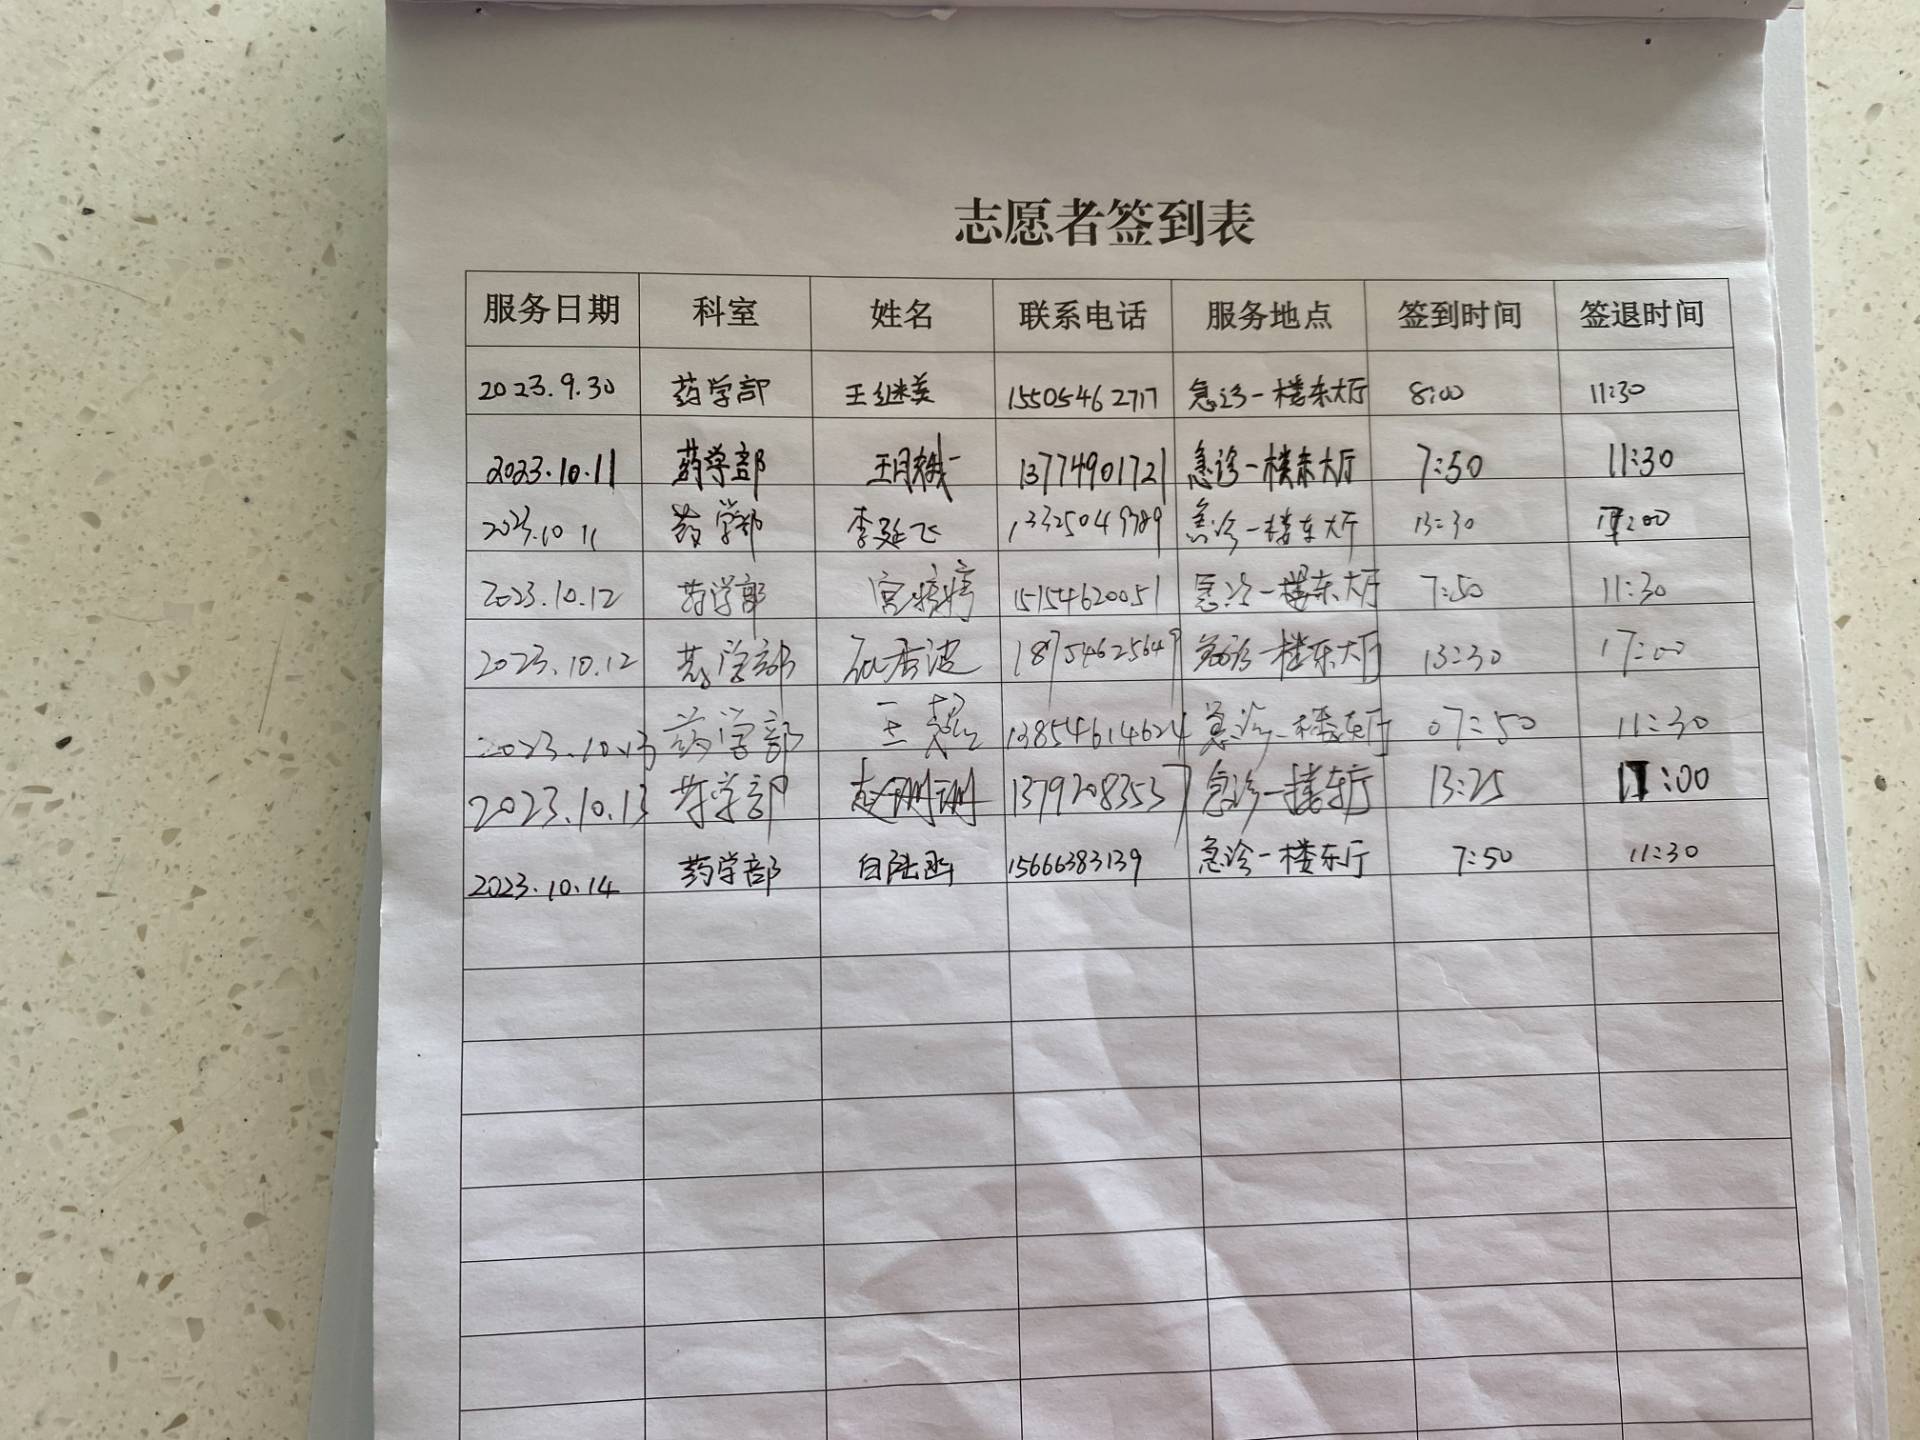 志愿者签到表
服务日期 科室 姓名 联系电话 服务地点 签到时间 签退时间
2023.9.30 药学部 王继美 15505462717 急诊一楼东大厅 8:00 11:30
2023.10.11 药学部 王月娥 13774901721 急诊一楼东大厅 7:50 11:30
2023.10 11 药学部 李延飞 13325049789 急诊一楼东大厅 13:30 17:00
2023.10.12 药学部 宫婷婷 15154620051 急诊一楼东大厅 7:50 11:30
2023.10.12 药学部 18754625649 急诊一楼东大厅 13:30 17:00
2023.10.13 药学部 王慧 13854614624 急诊一楼东厅 07:50 11:30
2023.10.13 药学部 赵珊珊 13792083537 急诊一楼东厅 13:25 17:00
2023.10.14 药学部 15666383139 急诊一楼东厅 7:50 11:30